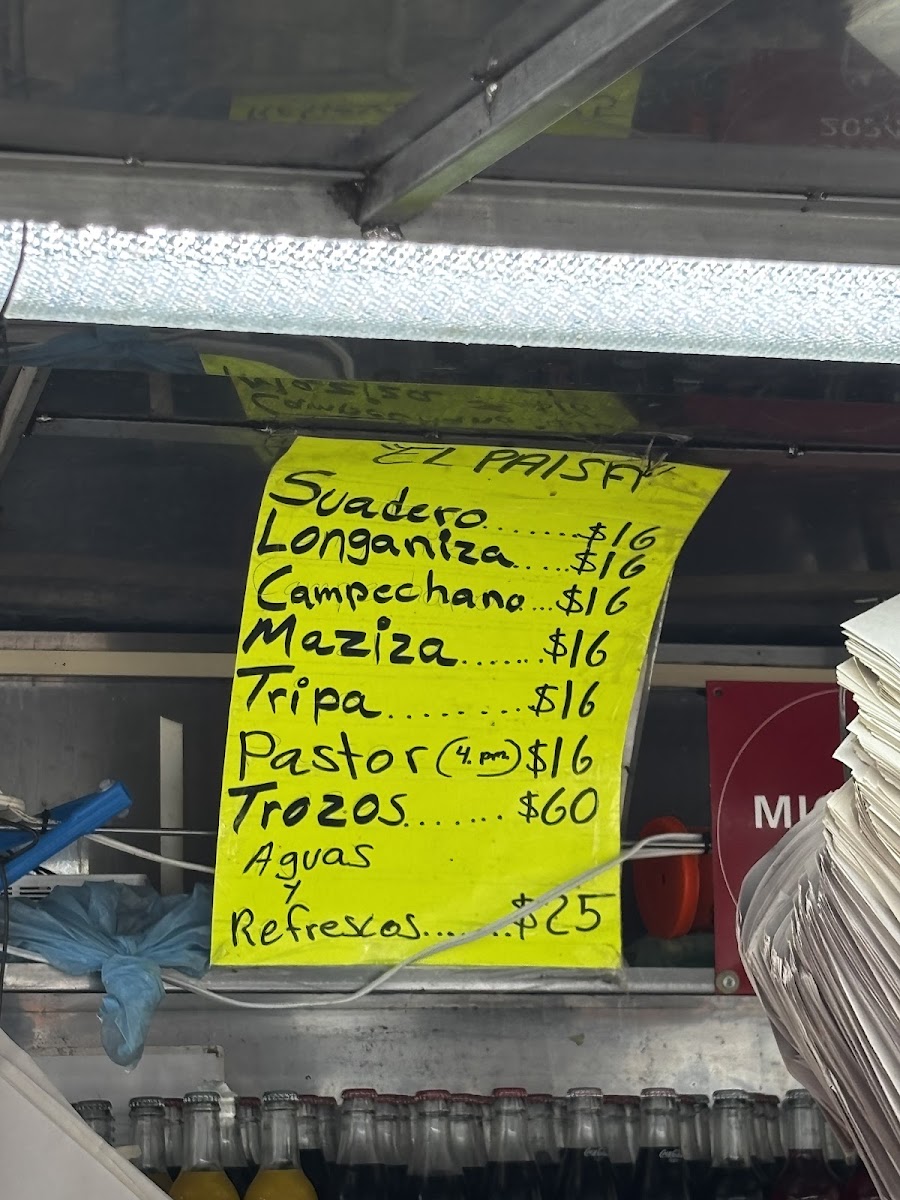 "EL PAISA"
Suadero........$16
Longaniza.....$16
Campechano...$16
Maziza.......$16
Tripa.........$16
Pastor (4. pm) $16
Trozos.......$60
Aguas
y
Refrescos.......$25